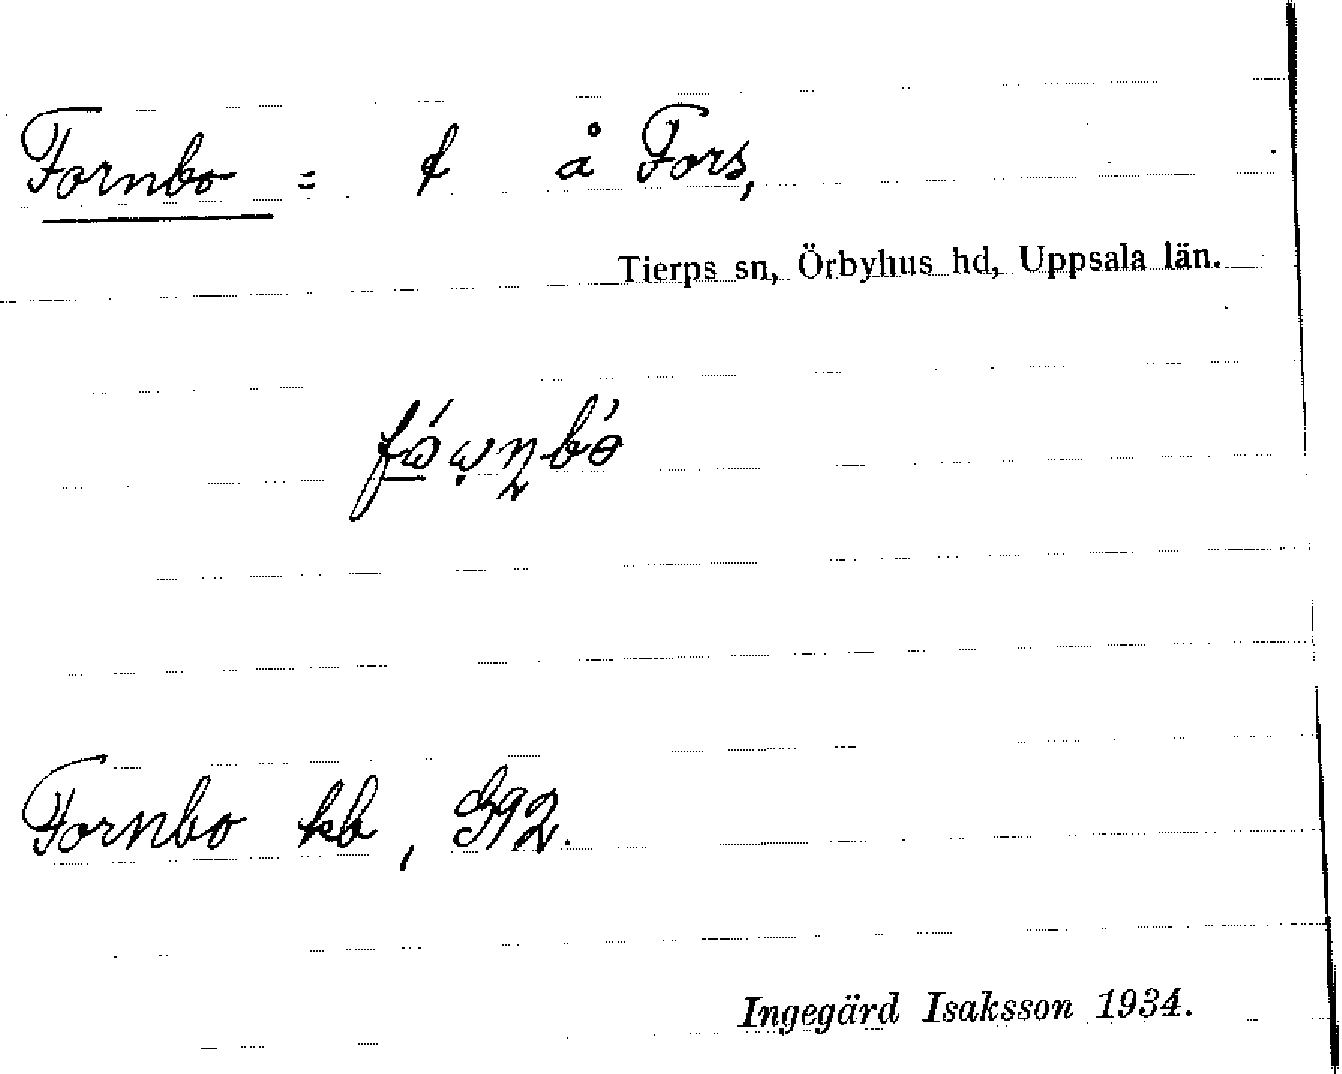 Fornbo = t å Fors,
Tierps sn, Örbyhus hd, Uppsala län.
Fornbo kb, G92.
Ingegärd Isaksson 1934.